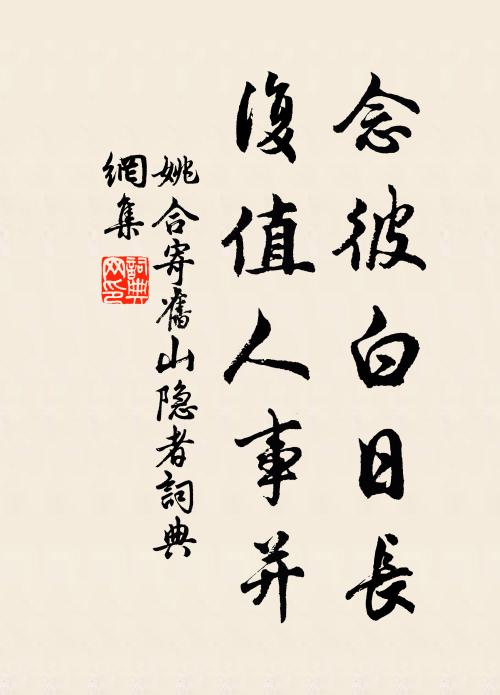 念彼白日長
復值人事并
姚合寄舊山隐者詞典
網集
詞典
网印